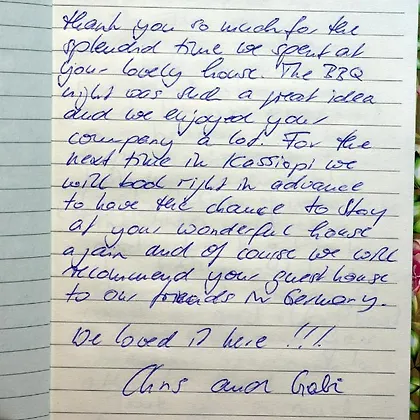 thank you so much for the
splendid time we spent at
your lovely house. The BBQ
night was such a great idea
and we enjoyed your
company a lot. For the
next time in Kassiopi we
will bood right in advance
to have the chance to stay
at your wonderful house
again and of course we will
recommend your guesthouse
to our friends in Germany.
We loved it here !!!
Chris and Gabi